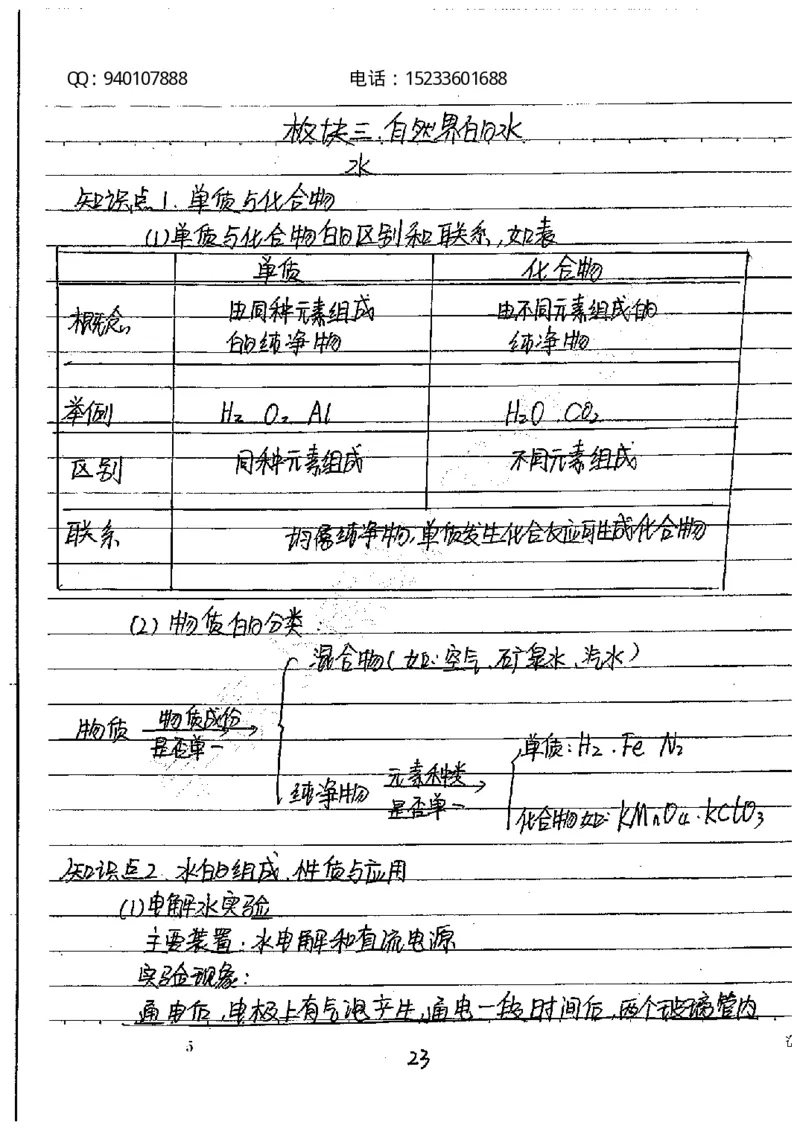 QQ：940107888 电话：15233601688
板块三.自然界的水
水
知识点1.单质与化合物
(1)单质与化合物的区别和联系,如表
单质 化合物
概念 由同种元素组成 由不同元素组成的
的纯净物 纯净物
举例 H₂ O₂ Al H₂O.CO₂
区别 同种元素组成 不同元素组成
联系 均属纯净物,单质发生化合反应可生成化合物
(2)物质的分类:
混合物(如:空气、矿泉水、汽水)
物质 物质成份
是否单一
单质:H₂.Fe N₂
纯净物 元素种类
是否单一
化合物如:KMnO₄.KClO₃
知识点2.水的组成、性质与应用
(1)电解水实验
主要装置:水电解和直流电源
实验现象:
通电后,电极上有气泡产生,通电一段时间后,两个玻璃管内
5
23